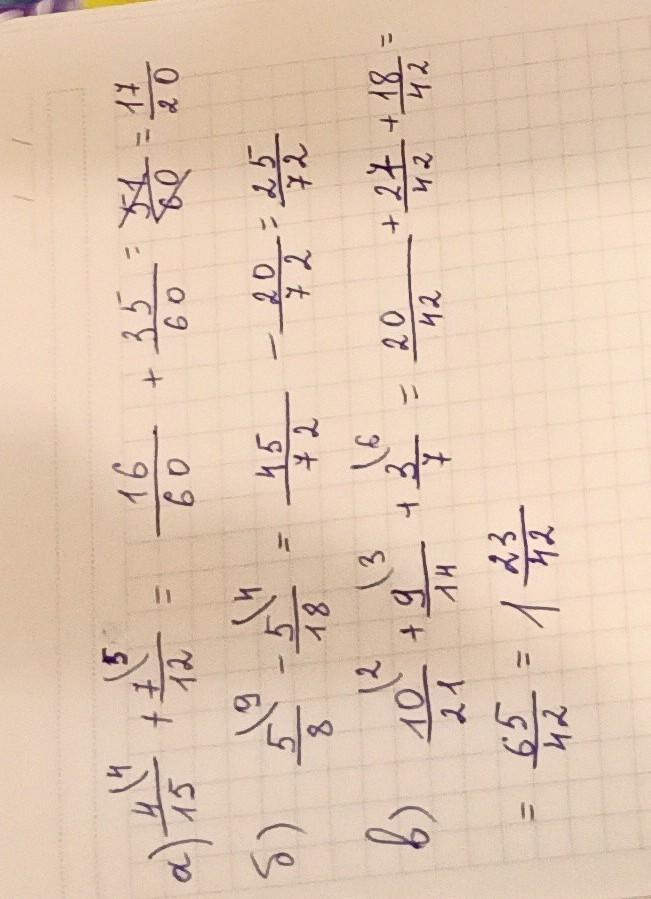 а) 4/15 \4 + 7/12 \5 = 16/60 + 35/60 = 51/60 = 17/20
б) 5/8 \9 - 5/18 \4 = 45/72 - 20/72 = 25/72
в) 10/21 \2 + 9/14 \3 + 3/7 \6 = 20/42 + 27/42 + 18/42 =
= 65/42 = 1 23/42